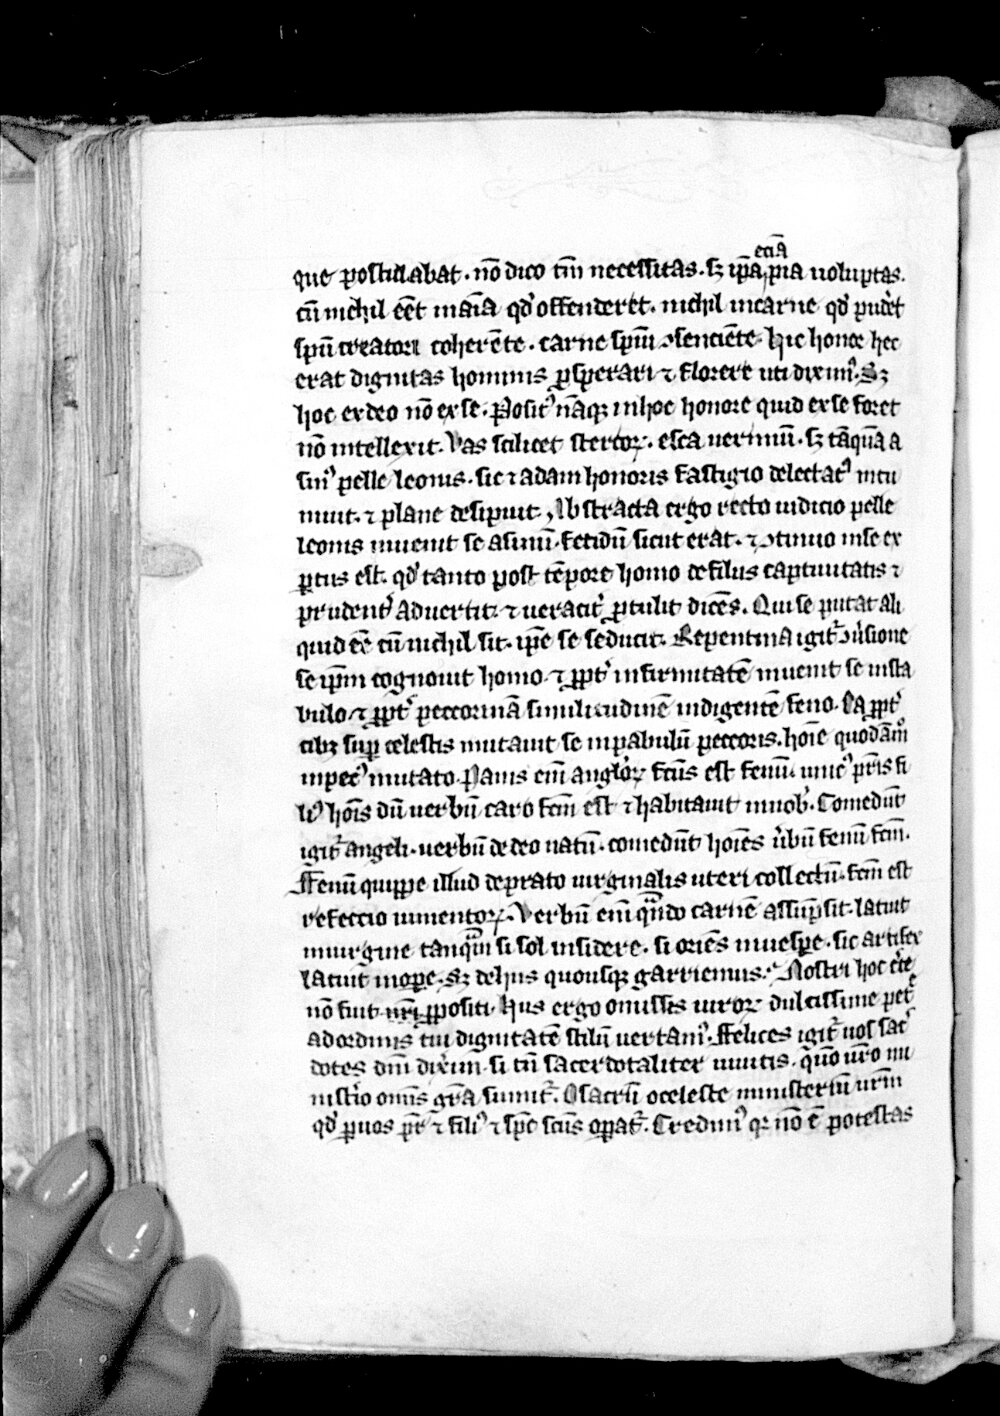 eciā
que postulabat. nō dico tm̄ necessitas. sꝫ ip̄a pͥa uoluptas.
cū nichil eēt in aīa qd' offenderet. nichil in carne qd' puder̉t
spū creatori coherēte. carne spūi ꝯsenciēte. hic honor hec
erat dignitas hominis ꝓsperari ⁊ florere uti diximꝰ. Sꝫ
hoc ex deo nō ex se. Positꝰ nāqꝫ in hoc honore quid ex se foret
nō intellexit. Vas scilicet stercoꝝ. esca uermiū. sꝫ tāquā a
sinꝰ pelle leonis. sic ⁊ adam honoris fastigio delectatꝰ intu
muit. ⁊ plane desipuit. Abstracta ergo recto iudicio pelle
leonis inuenit se asinū. fetidū sicut erat. ⁊ ꝯtinuo in se ex
ꝑtus est. qd' tanto post tēpore homo de filiis captiuitatis ⁊
prudent̉ aduertit. ⁊ ueracit̉ ꝓtulit dicēs. Qui se putat ali
quid eē cū nichil sit. ip̄e se seducit. Repentina igit̉ ꝯu̓sione
se ip̄m cognouit homo. ⁊ ꝓpt̉ infirmitatē inuenit se in sta
bulo. ⁊ ꝓpt̉ peccorinā similitudinē indigentē feno. Ea ꝓpt̉
cibꝫ suꝑ celestis mutauit se in pabulū peccoris. hoīe quodāmº
in pecꝰ mutato. Panis em̄ angloꝝ fc̄us est fenū. unicꝰ pr̄is fi
liꝰ hoīs dū uerbū caro fcm̄ est ⁊ habitauit in nob̉. Comedūt
igit̉ angeli. uerbū de deo natū. comedūt hoīes u̓bū fenū fcm̄.
Ffenū quippe illud de prato uirginalis uteri collectū. fcm̄ est
refeccio iumentoꝝ. Verbū em̄ qn̄do carnē assūpsit. latuit
in uirgine tanqm̄ si sol in sidere. si oriēs in uespe. sic artifex
latuit in oꝑe. Sꝫ de hiis quousqꝫ garriemus. Nostri hoc cer̉te
nō fuit nr̄i ꝓpositi. Hiis ergo omissis uiroꝝ dulcissime pet̉
ad ordinis tui dignitatē stilū uertamꝰ. Ffelices igit̉ uos sac̉
dotes dm̄ diximꝰ. si tn̄ sacerdotaliter uiuitis. quō ur̄o mi
nist̉io omīs gr̄a sumit̉. O sacrū o celeste ministeriū ur̄m
qd' ꝑ uos pr̄ ⁊ filiꝰ ⁊ spc̄ sc̄us oꝑat̉. Credimꝰ qꝛ nō ē potestas